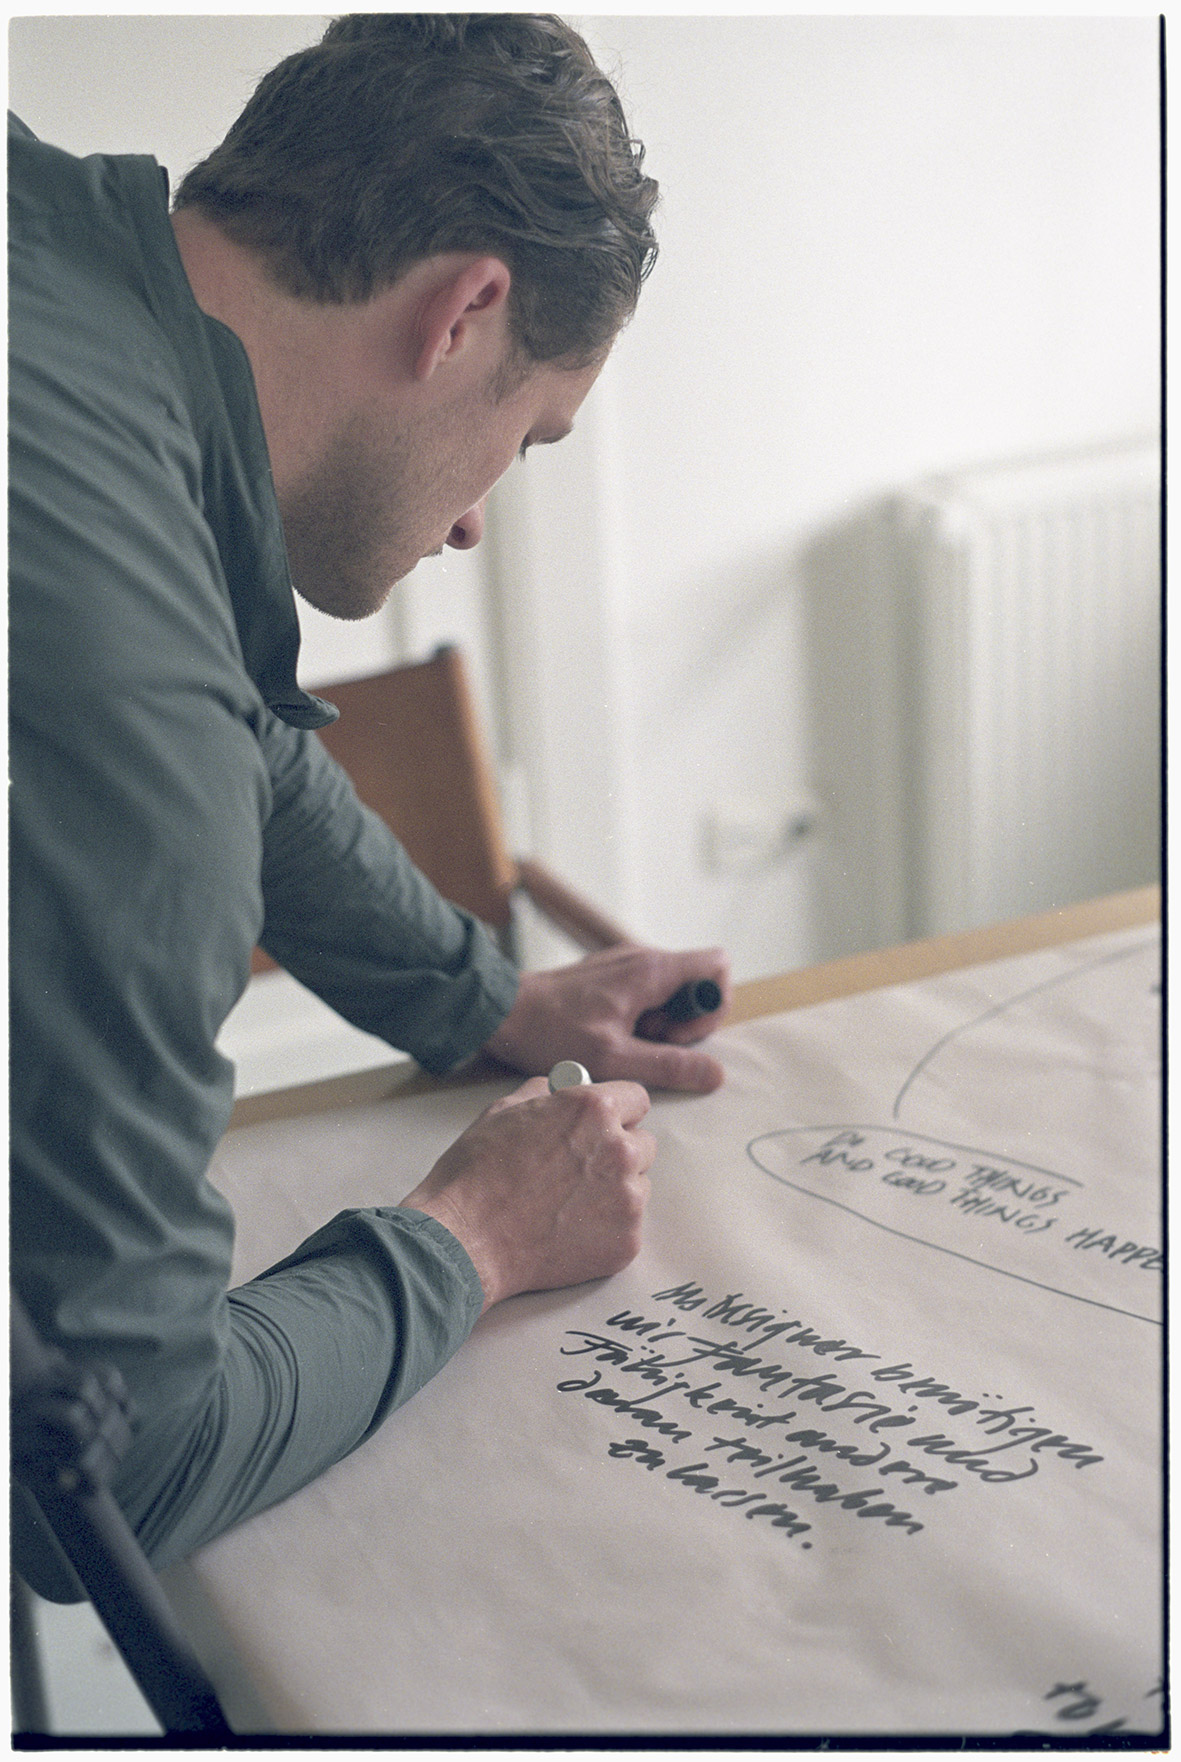 DO GOOD THINGS
AND GOOD THINGS HAPPE
Als Designer benötigen
wir Fantasie und
Fähigkeit andere
daran teilhaben
zu lassen.
to